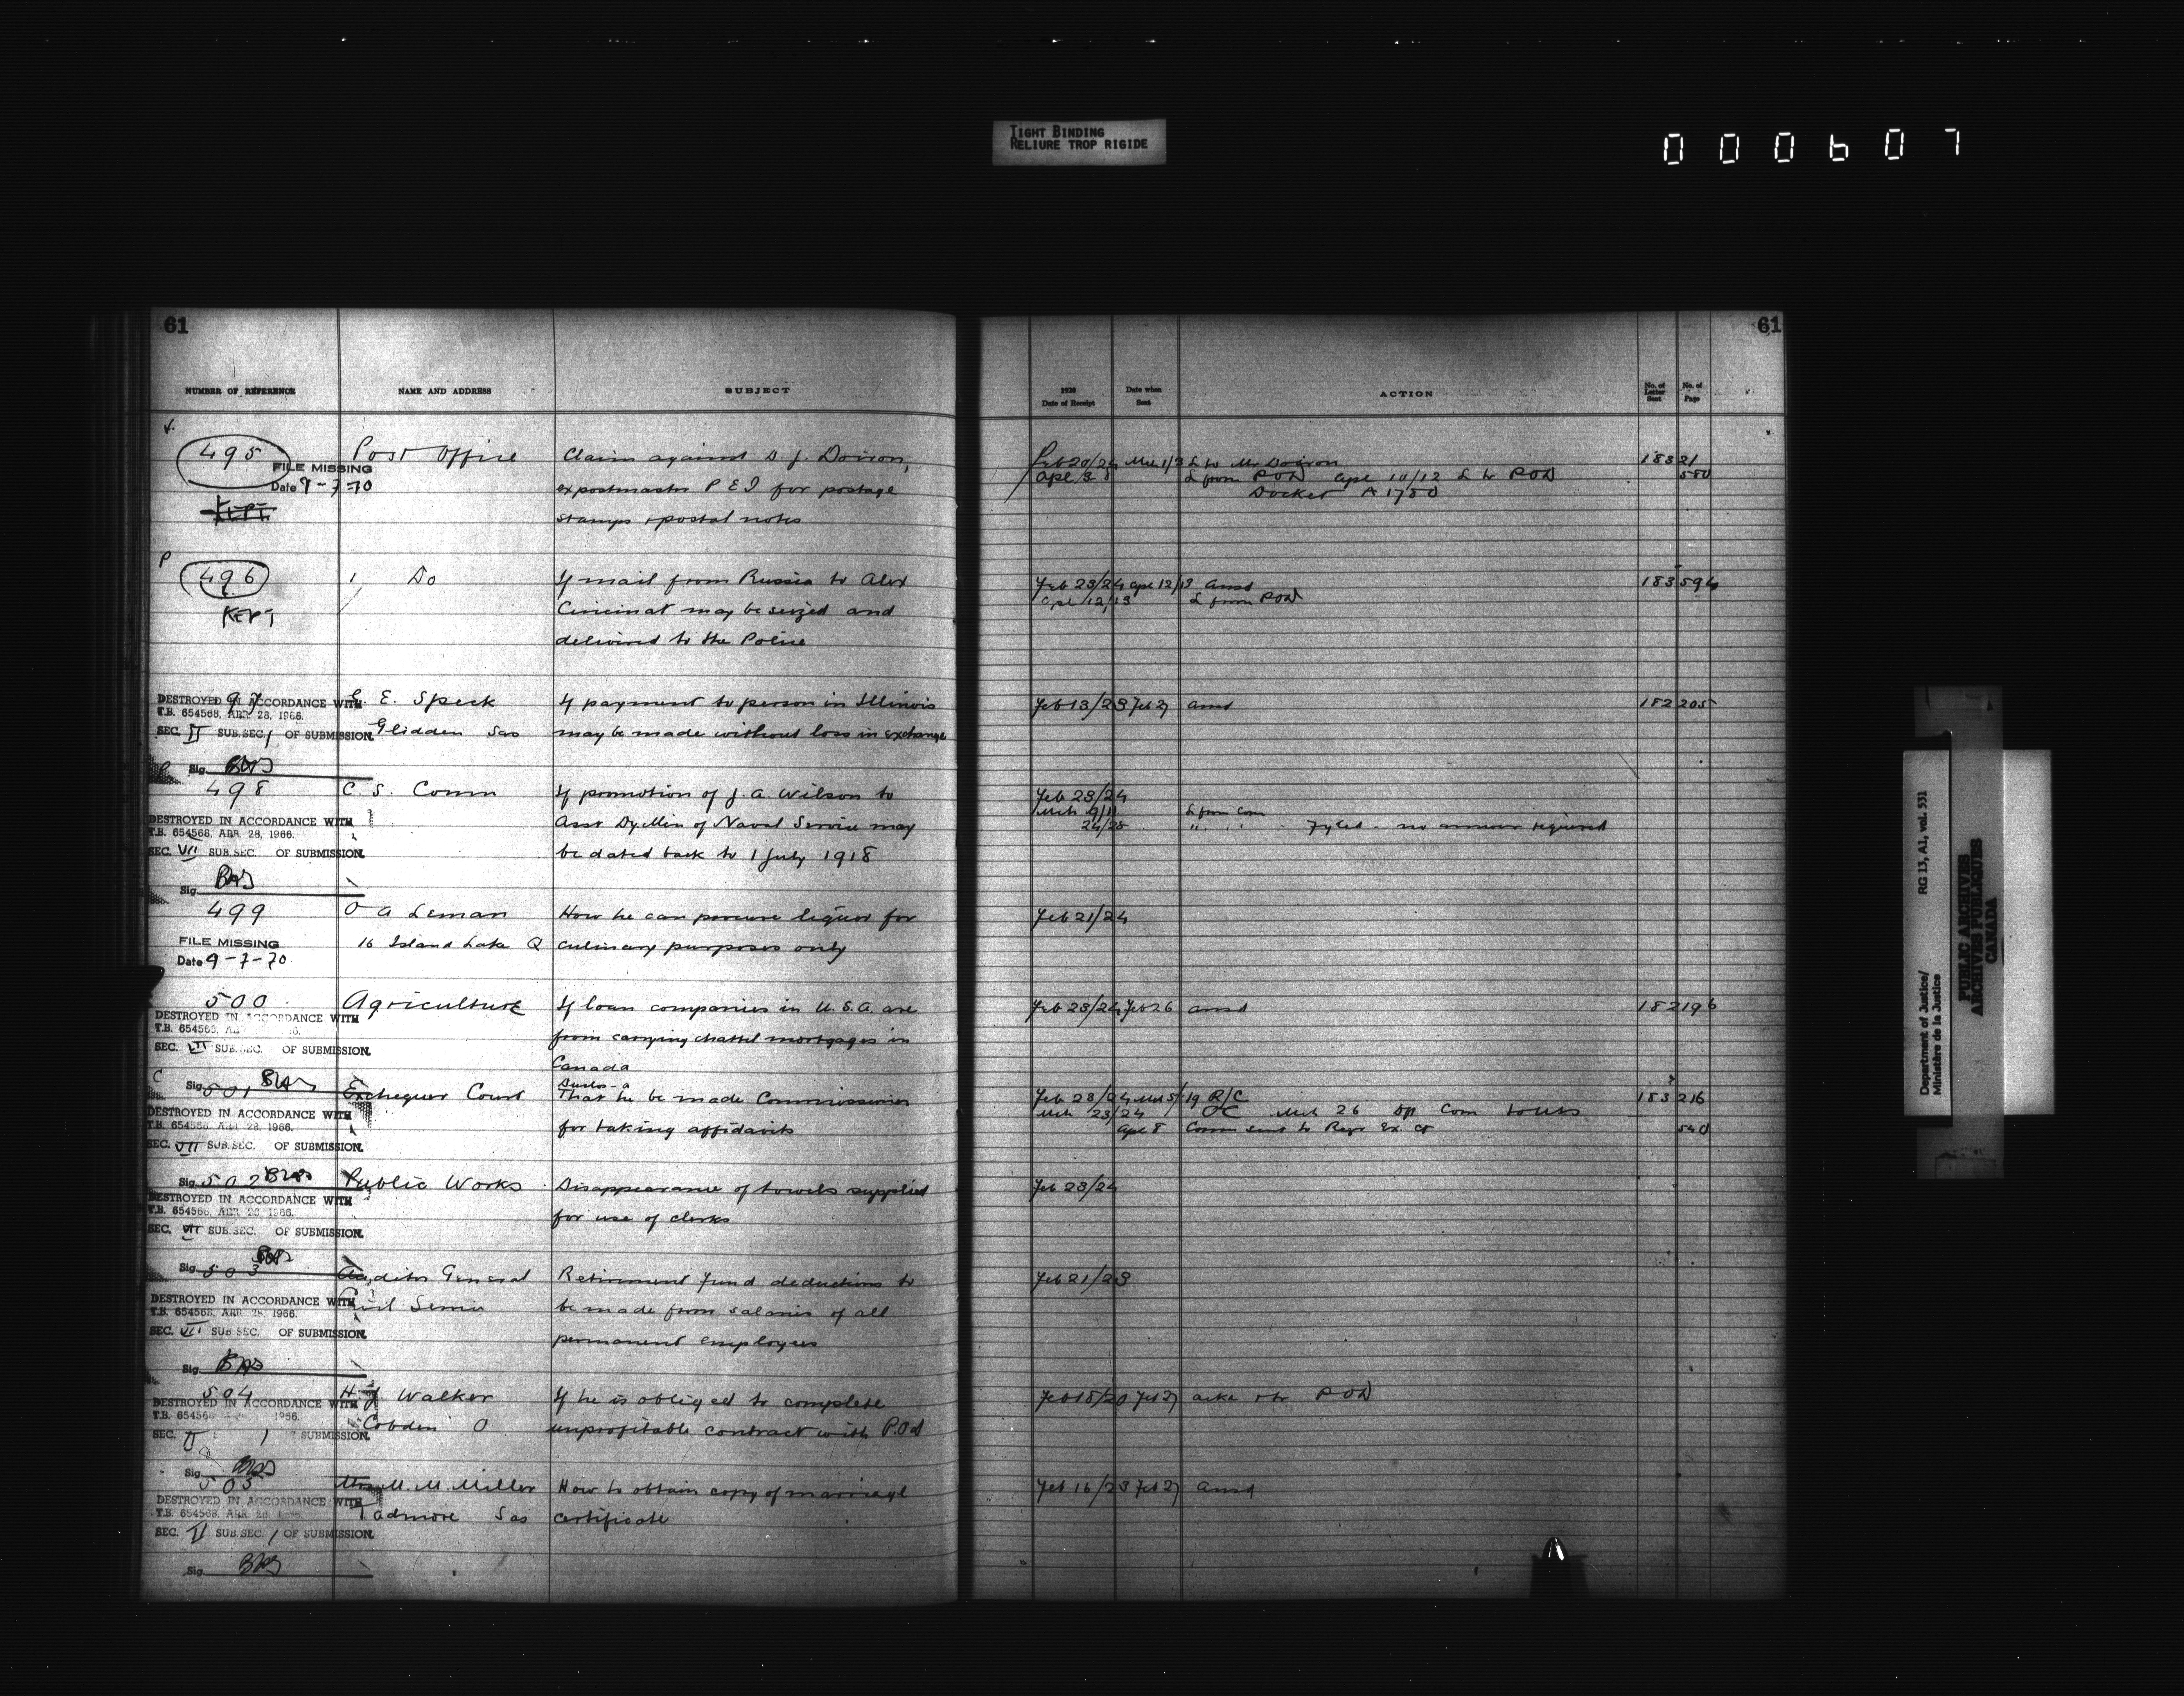 TIGHT BINDING
RELIURE TROP RIGIDE
000607
61
NUMBER OF REFERENCE NAME AND ADDRESS SUBJECT
495 Post Office Claim against S. J. Doiron,
FILE MISSING
Date 9-7-70 expostmaster P E I for postage
KEPT stamps & postal notes
P
496 Do If mail from Russia to Alex
KEPT Cincinat may be seized and
delivered to the Police
97 E. Speck If payment to person in Illinois
DESTROYED IN ACCORDANCE WITH
T.B. 654568, ABR. 28, 1966.
SEC. II SUB.SEC. 1 OF SUBMISSION. Glidden Sas may be made without loss in exchange
Sig.
498 C. S. Comm If promotion of J. A. Wilson to
DESTROYED IN ACCORDANCE WITH Asst Dy Min of Naval Service may
T.B. 654568, ABR. 28, 1966.
SEC. VII SUB.SEC. OF SUBMISSION. be dated back to 1 July 1918
Sig.
499 O A Leman How he can procure liquor for
FILE MISSING 16 Island Lake Q culinary purposes only
Date 9-7-70
500 Agriculture If loan companies in U.S.A. are
DESTROYED IN ACCORDANCE WITH
T.B. 654568,
SEC. VII SUB.SEC. OF SUBMISSION. from carrying chattel mortgages in
Canada
C
Sig. 501 Exchequer Court That he be made Commissioner
DESTROYED IN ACCORDANCE WITH
T.B. 654568, ABR. 28, 1966. for taking affidavits
SEC. VII SUB.SEC. OF SUBMISSION.
Sig. 502 Public Works Disappearance of towels supplied
DESTROYED IN ACCORDANCE WITH
T.B. 654568, ABR. 28, 1966. for use of clerks
SEC. VII SUB.SEC. OF SUBMISSION.
Sig. 503 Auditor General Retirement Fund deductions to
DESTROYED IN ACCORDANCE WITH Civil Service be made from salaries of all
T.B. 654568, ABR. 28, 1966.
SEC. VII SUB.SEC. OF SUBMISSION. permanent employees
Sig.
504 H J Walker If he is obliged to complete
DESTROYED IN ACCORDANCE WITH
T.B. 654568 1966.
SEC. II 1 SUBMISSION. Cobden O unprofitable contract with P.O.D
Sig.
505 Mrs M. M. Miller How to obtain copy of marriage
DESTROYED IN ACCORDANCE WITH
T.B. 654568, ABR. 28, Tadmore Sas certificate
SEC. II SUB.SEC. 1 OF SUBMISSION.
Sig.
61
1928 Date of Receipt Date when Sent ACTION No. of Letter Sent No. of Page
Feb 20/24 Mch 1/3 L to Mr Doiron 183 21
Apl 3 L from POD Apl 10/12 L to POD 580
Docket A 1780
Feb 23/24 Apl 12/13 ansd 183 594
Apl 12/13 L from POD
Feb 13/23 Feb 27 ansd 182 205
Feb 23/24
Mch 9/11 L from Com
24/25 " Fyled - no answer required
Feb 21/24
Feb 23/24 Feb 26 ansd 182 196
Feb 23/24 Mch 5/19 R/C 183 216
Mch 23/24 OC Mch 26 Com
Apl 8 Comm sent to Regr Ex. Ct 540
Feb 23/24
Feb 21/23
Feb 18/20 Feb 27 POD
Feb 16/23 Feb 27 ansd
Department of Justice/
Ministère de la Justice
RG 13, A1, vol. 531
PUBLIC ARCHIVES
ARCHIVES PUBLIQUES
CANADA